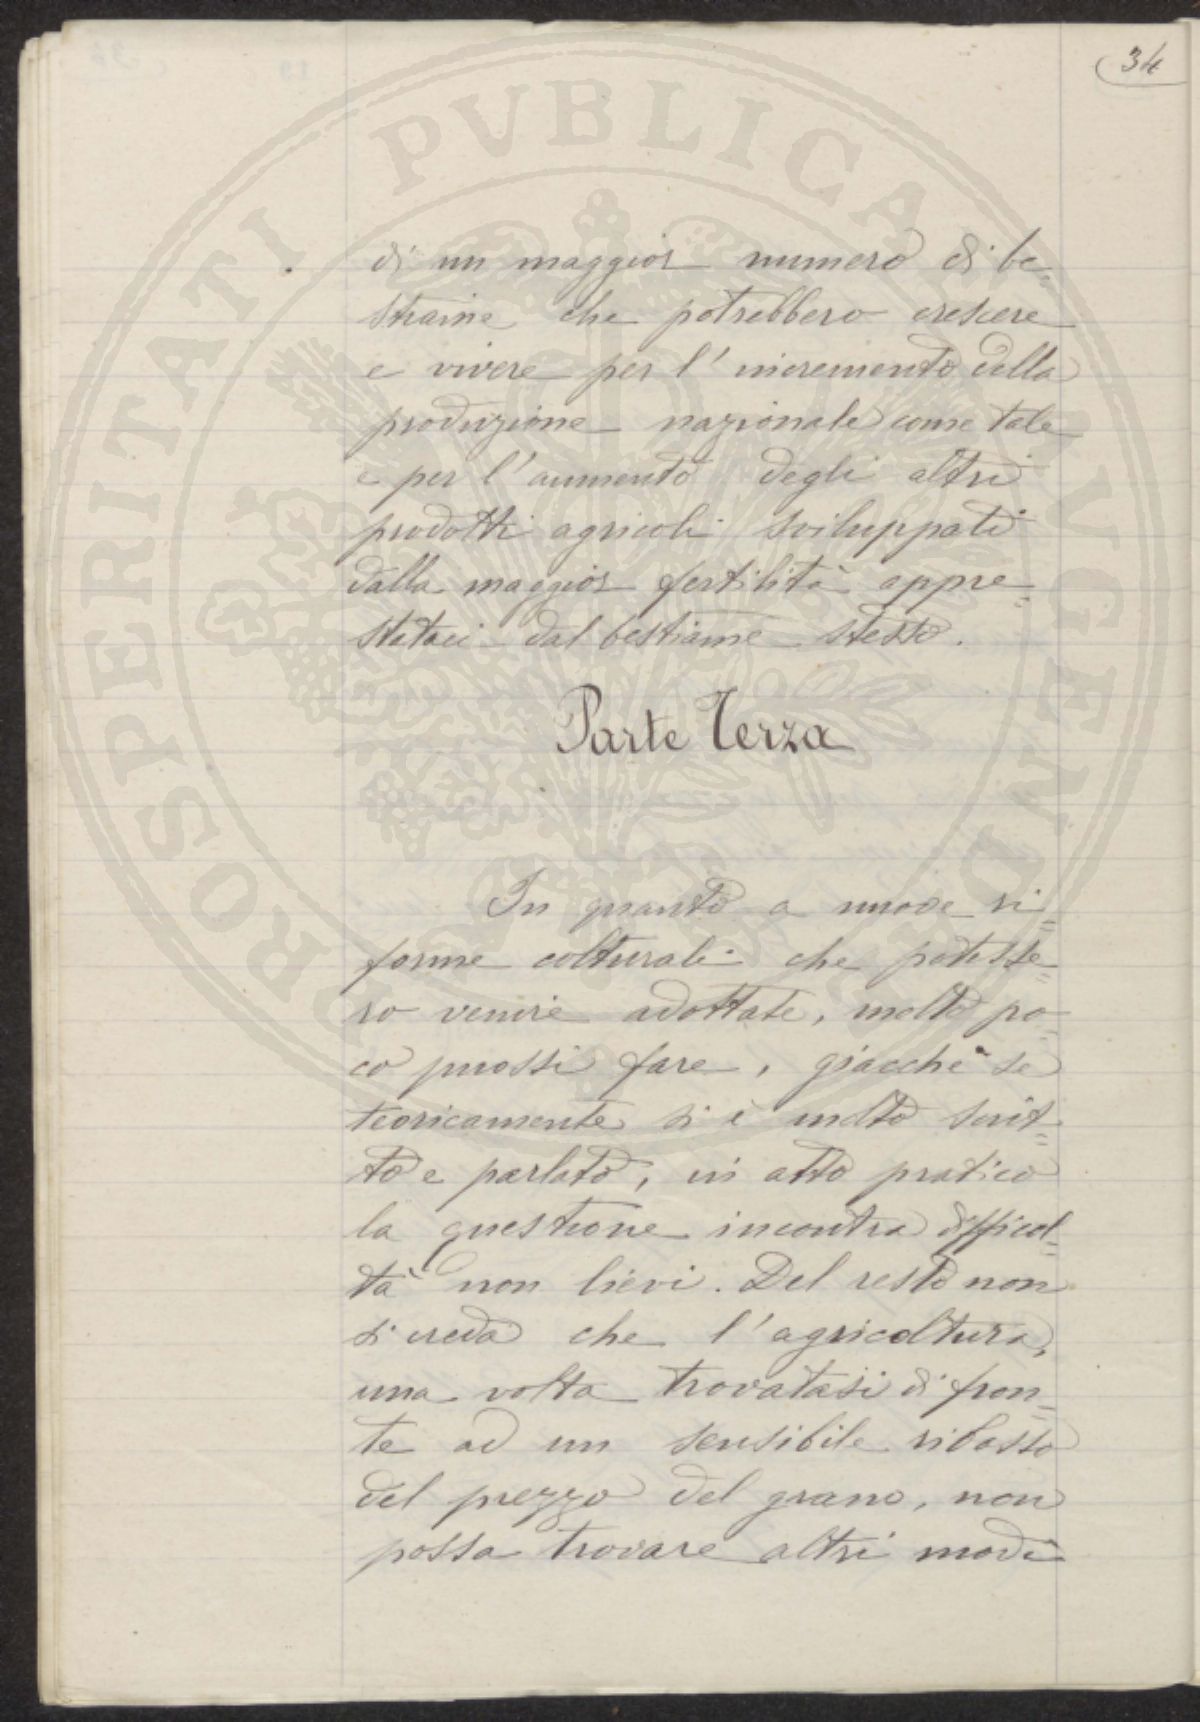 34
di un maggior numero di be=
stiame che potrebbero crescere
e vivere per l'incremento della
produzione nazionale come tale
e per l'aumento degli altri
prodotti agricoli sviluppati
dalla maggior fertilità appre=
stataci dal bestiame stesso.
Parte Terza
In quanto a nuove ri=
forme colturali che potesse=
ro venire adottate, molto po=
co puossi fare, giacchè se
teoricamente si è molto scrit=
to e parlato, in atto pratico
la questione incontra difficol=
tà non lievi. Del resto non
si creda che l'agricoltura,
una volta trovatasi di fron=
te ad un sensibile ribasso
del prezzo del grano, non
possa trovare altri modi
PROSPERITATI PVBLICAE AVGENDAE